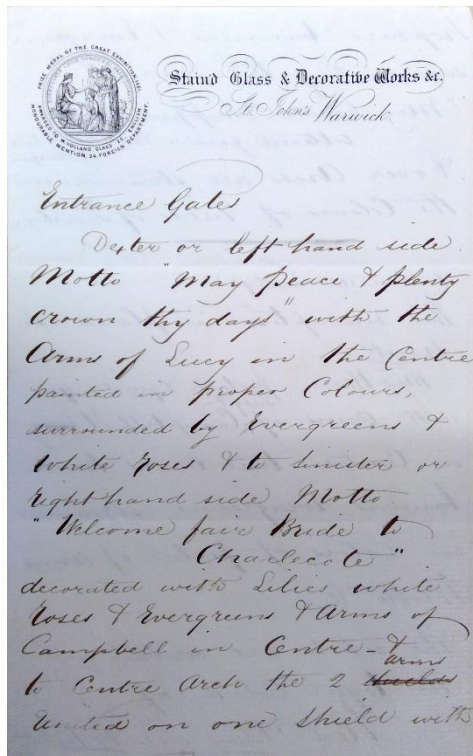 PRIZE MEDAL OF THE GREAT EXHIBITION 1851
AWARDED TO HOLLAND GLASS
HONOURABLE MENTION, 24, FOREIGN DEPARTMENT.
Stain'd Glass & Decorative Works &c.
St. John's Warwick.
Entrance Gates
Dexter or left hand side
Motto "May peace & plenty
crown thy days" with the
Arms of Lucy in the Centre
painted in proper Colours,
surrounded by Evergreens &
White roses & to Sinister or
right hand side Motto
"Welcome fair Bride to
Charlecote"
decorated with Lilies white
roses & Evergreens & Arms of
Campbell in Centre - &
to Centre Arch the 2 arms
United on one shield with